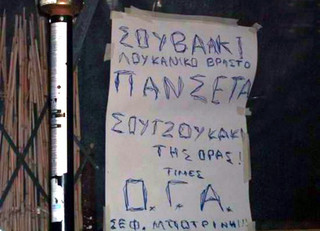 ΣΟΥΒΛΑΚΙ
ΛΟΥΚΑΝΙΚΟ ΒΡΑΣΤΟ
ΠΑΝΣΕΤΑ
ΣΟΥΤΖΟΥΚΑΚΙ
ΤΗΣ ΩΡΑΣ!
ΤΙΜΕΣ
Ο.Γ.Α.
ΣΕΦ.